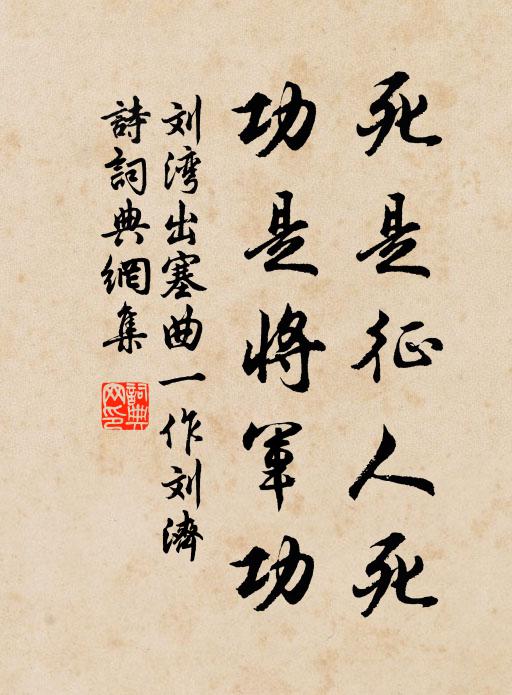 死是征人死
功是将军功
刘湾出塞曲一作刘濟
詩詞典網集
詞典网印